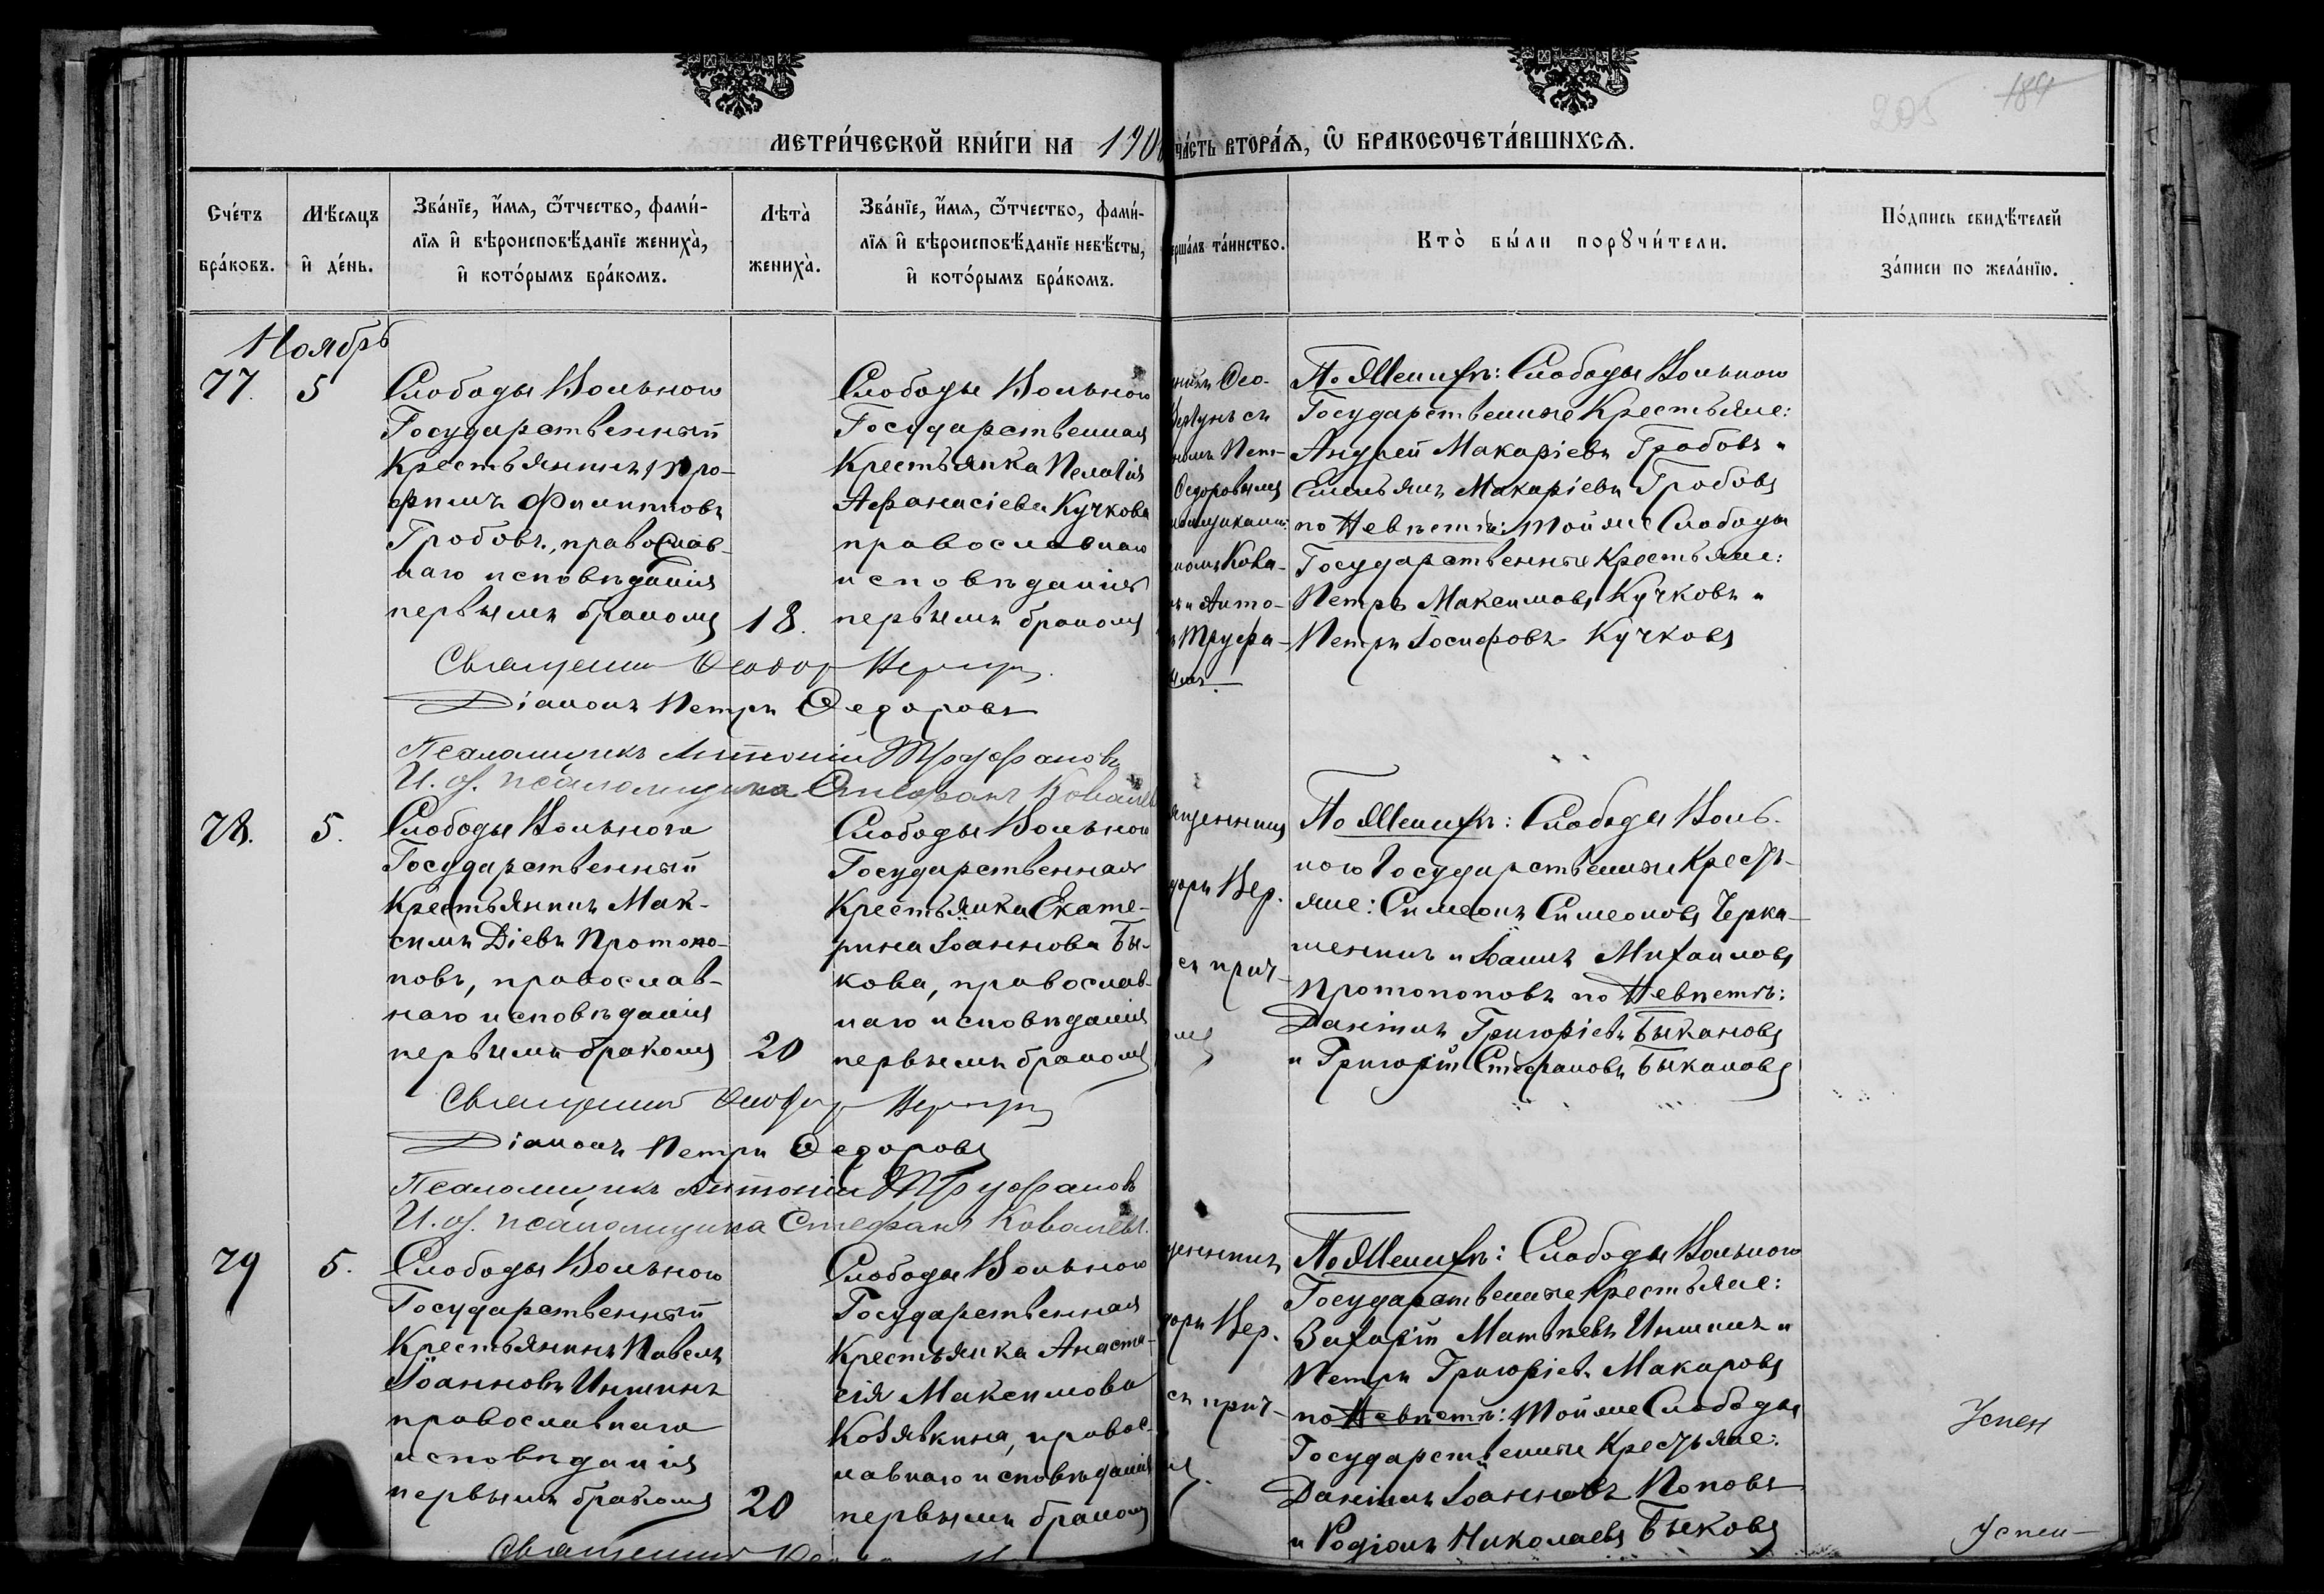 МЕТРИ́ЧЕСКОЙ КНИ́ГИ НА 190
ЧА́СТЬ ВТОРА́Я, Ѿ БРАКОСОЧЕТА́ВШИХСѦ.
205 184
Сче́тъ бра́ковъ.
Мѣ́сяцъ и҆ де́нь.
Зва́нїе, и҆́мя, ѻ҆́тчество, фами́-
лїя и҆ вѣроисповѣ́данїе жениха̀,
и҆ кото́рымъ бра́комъ.
Лѣта̀ жениха̀.
Зва́нїе, и҆́мя, ѻ҆́тчество, фами́-
лїя и҆ вѣроисповѣ́данїе невѣ́сты,
и҆ кото́рымъ бра́комъ.
ерша́лъ та́инство.
Кто̀ бы́ли порꙋчи́тели.
По́дпись свидѣ́телей
за́писи по жела́нїю.
Ноябрь
77. 5
Слободы Вольного
Государственный
Крестьянинъ Тро-
фимъ Филиповъ
Гробовъ, православ-
наго исповѣданія
первымъ бракомъ
18.
Слободы Вольного
Государственная
Крестьянка Пелагія
Афанасіева Кучкова
православнаго
исповѣданія
первымъ бракомъ
ѳео-
съ
Пет-
Ѳедоровымъ
Кова-
и Анто-
Труфа-
По Женихѣ: Слободы Вольного
Государственные Крестьяне:
Андрей Макаріевъ Гробовъ и
Емельянъ Макаріевъ Гробовъ
по Невѣстѣ: Той же Слободы
Государственные Крестьяне:
Петръ Максимовъ Кучковъ и
Петръ Іосифовъ Кучковъ
Священникъ Ѳеодоръ
Діаконъ Петръ Ѳедоровъ
Псаломщикъ Антоній Труфановъ
И. о. псаломщика Стефанъ Ковалевъ
78. 5.
Слободы Вольного
Государственный
Крестьянинъ Мак-
симъ Діевъ Протопо-
повъ, православ-
наго исповѣданія
первымъ бракомъ
20
Слободы Вольного
Государственная
Крестьянка Екате-
рина Іоаннова Бы-
кова, православ-
наго исповѣданія
первымъ бракомъ
ященникъ
доръ Вер.
съ прич-
омъ
По Женихѣ: Слободы Воль-
ного Государственные Кресть-
яне: Симеонъ Симеоновъ Черка-
шенинъ и Іоаннъ Михаиловъ
Протопоповъ по Невѣстѣ:
Даніилъ Григоріевъ Быкановъ
и Григорій Стефановъ Быкановъ
Священникъ Ѳеодоръ
Діаконъ Петръ Ѳедоровъ
Псаломщикъ Антоній Труфановъ
И. о. псаломщика Стефанъ Ковалевъ.
79 5.
Слободы Вольного
Государственный
Крестьянинъ Павелъ
Іоанновъ Иншинъ
православнаго
исповѣданія
первымъ бракомъ
20
Слободы Вольного
Государственная
Крестьянка Анаста-
сія Максимова
Козявкина, правос-
лавнаго исповѣданія
первымъ бракомъ
щенникъ
доръ Вер.
съ прич-
По Женихѣ: Слободы Вольного
Государственные Крестьяне:
Захарій Матвѣевъ Иншинъ и
Петръ Григоріевъ Макаровъ
по Невѣстѣ: Той же Слободы
Государственные Крестьяне:
Даніилъ Іоанновъ Поповъ
и Родіонъ Николаевъ Быковъ
Успен
Успен
Священникъ